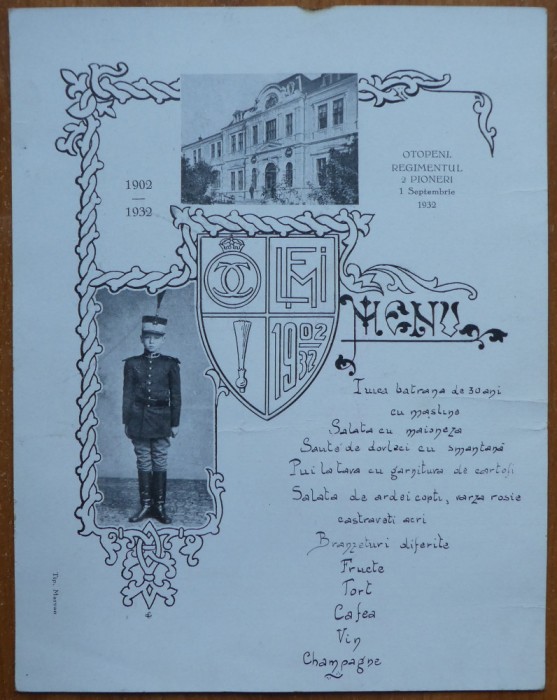 1902
—
1932
OTOPENI.
REGIMENTUL
2 PIONERI
1 Septembrie
1932
1902
32
MENU
Tuica batrana de 30 ani
cu masline
Salata cu maioneza
Saute de dovlaci cu smantană
Pui la tava cu garnitura de cartofi
Salata de ardei copti, varza rosie
castraveti acri
Branzeturi diferite
Fructe
Tort
Cafea
Vin
Champagne
Tip. Marvan